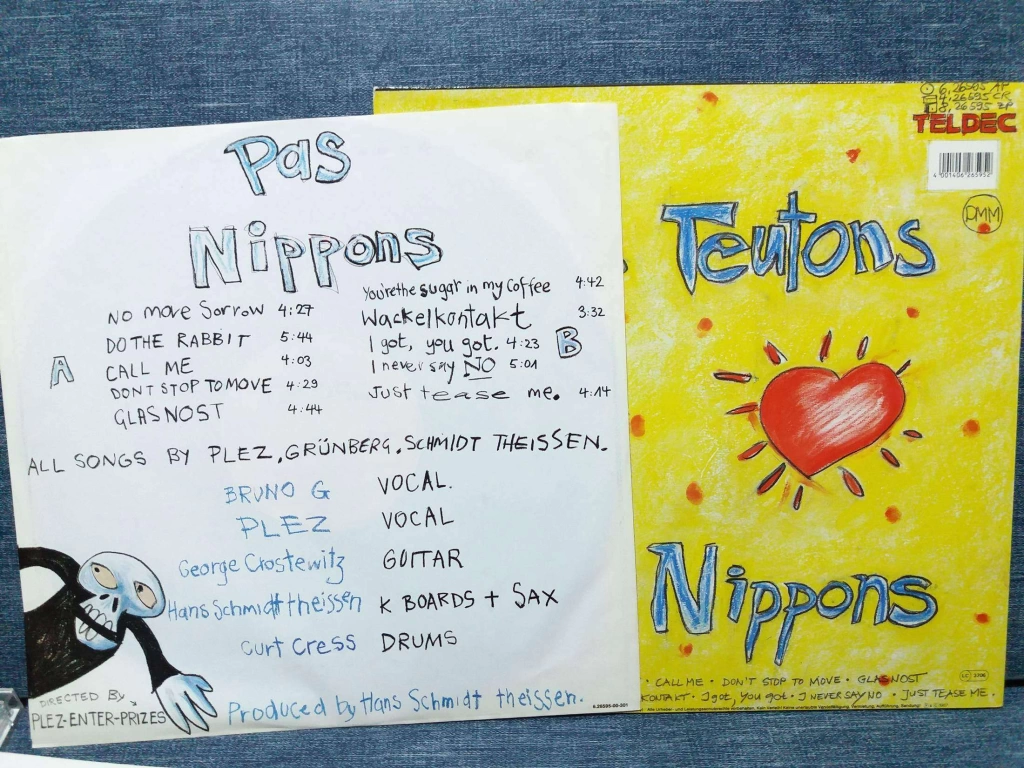 Pas
Nippons
A
No move Sorrow 4:27
DO THE RABBIT 5:44
CALL ME 4:03
DON'T STOP TO MOVE 4:29
GLASNOST 4:44
B
You're the sugar in my Coffee 4:42
Wackelkontakt 3:32
I got, you got. 4:23
I never say NO 5:01
Just tease me. 4:14
ALL SONGS BY PLEZ, GRÜNBERG, SCHMIDT THEISSEN.
BRUNO G VOCAL.
PLEZ VOCAL
George Crostewitz GUITAR
Hans Schmidt theissen K BOARDS + SAX
Curt Cress DRUMS
DIRECTED By
PLEZ-ENTER-PRIZES
Produced by Hans Schmidt theissen.
6.26595-00-201
6.26595 AP
4.26595 CR
8.26595 ZP
TELDEC
4 001406 265952
DMM
Teutons
Nippons
· CALL ME · DON'T STOP TO MOVE · GLASNOST
KONTAKT · I got, you got · I NEVER SAY NO · JUST TEASE ME.
LC 3706